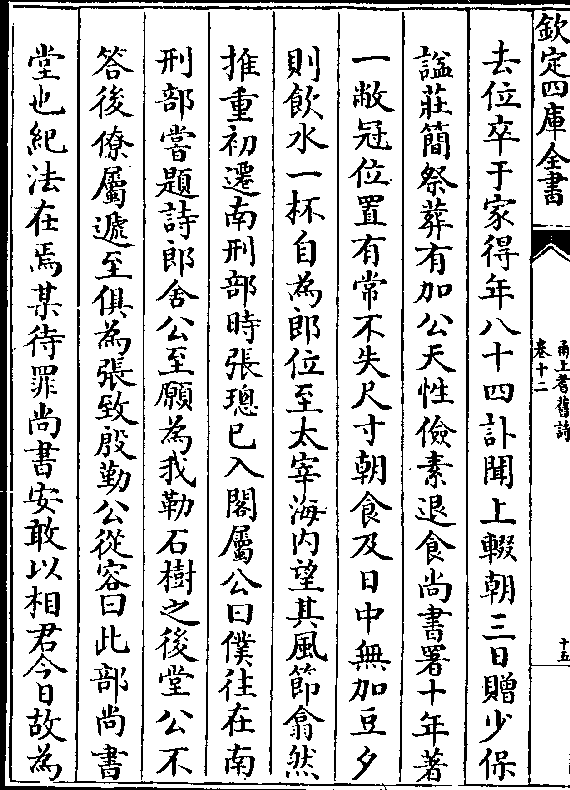 欽定四庫全書
甬上耆舊詩
卷十二
十五
去位卒于家得年八十四訃聞上輟朝三日贈少保
諡莊簡祭葬有加公天性儉素退食尚書署十年著
一敝冠位置有常不失尺寸朝食及日中無加豆夕
則飲水一杯自為郎位至太宰海内望其風節翕然
推重初遷南刑部時張璁已入閣屬公曰僕往在南
刑部嘗題詩郎舍公至願為我勒石樹之後堂公不
答後僚屬遞至俱為張致殷勤公從容曰此部尚書
堂也紀法在焉某待罪尚書安敢以相君今日故為